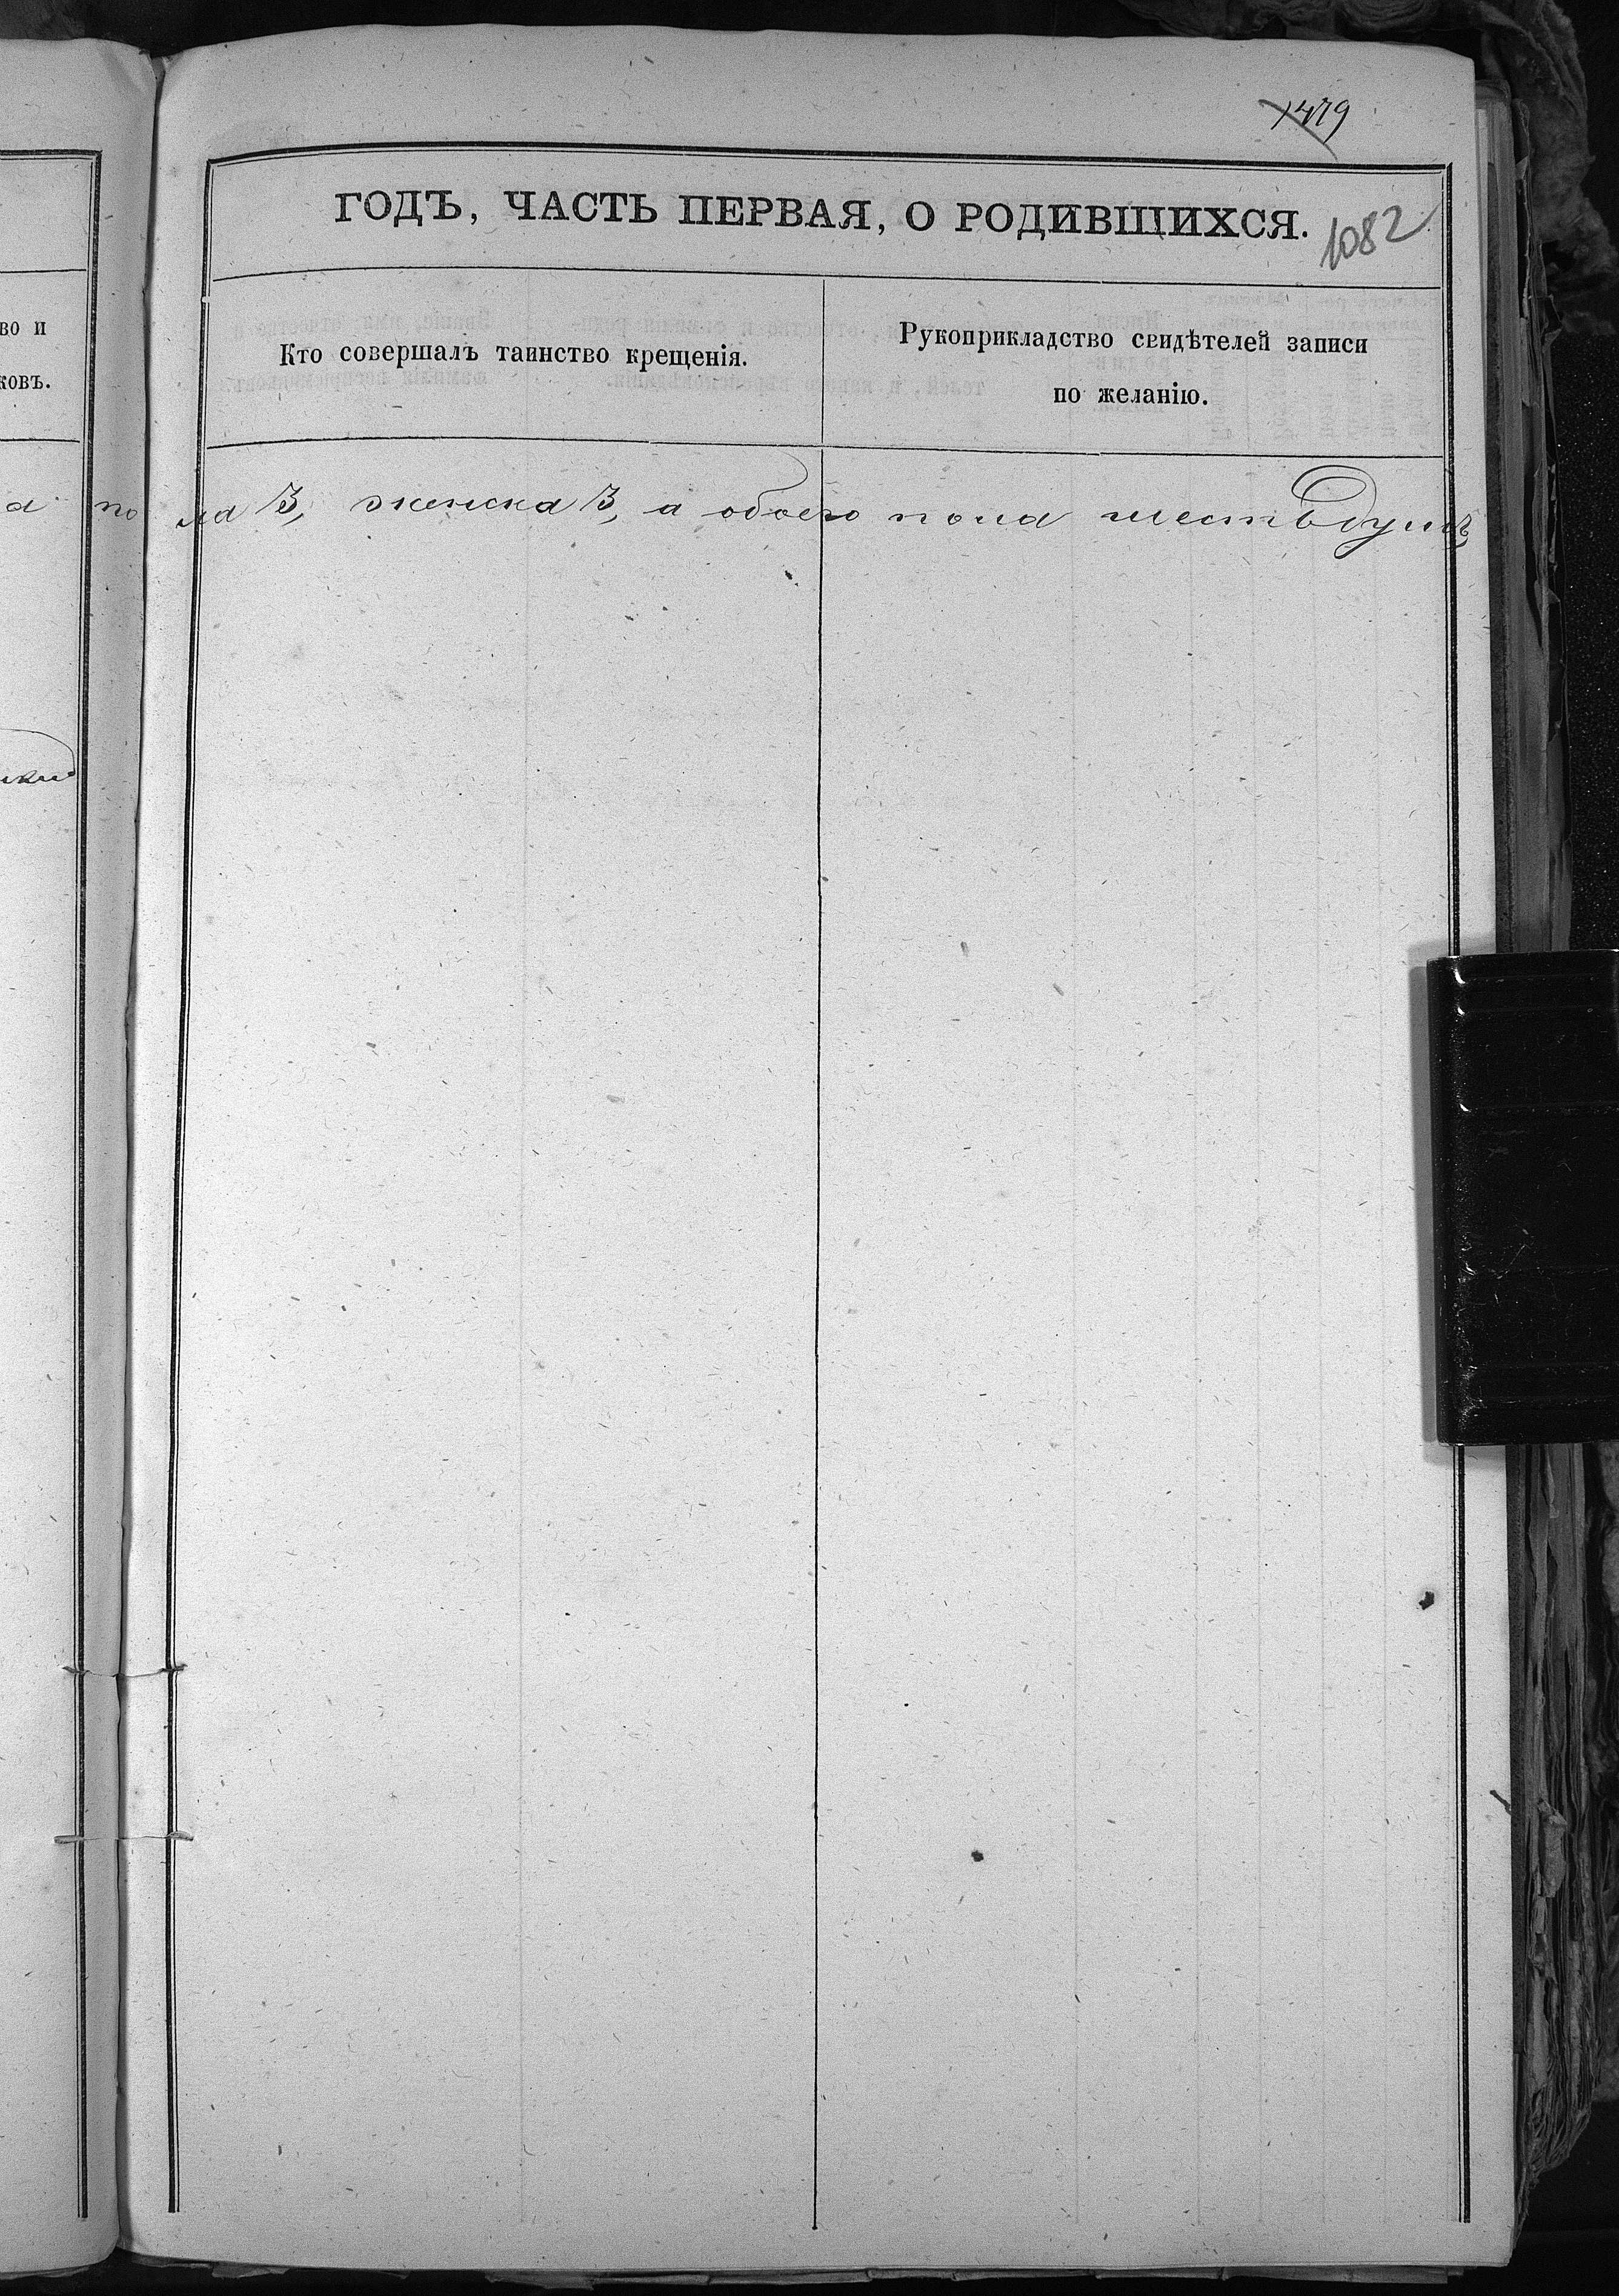 479
ГОДЪ, ЧАСТЬ ПЕРВАЯ, О РОДИВШИХСЯ.
1082
во и
ковъ.
Кто совершалъ таинство крещенія.
Рукоприкладство свидѣтелей записи
по желанію.
а пола 3, женска 3, а обоего пола шесть душъ